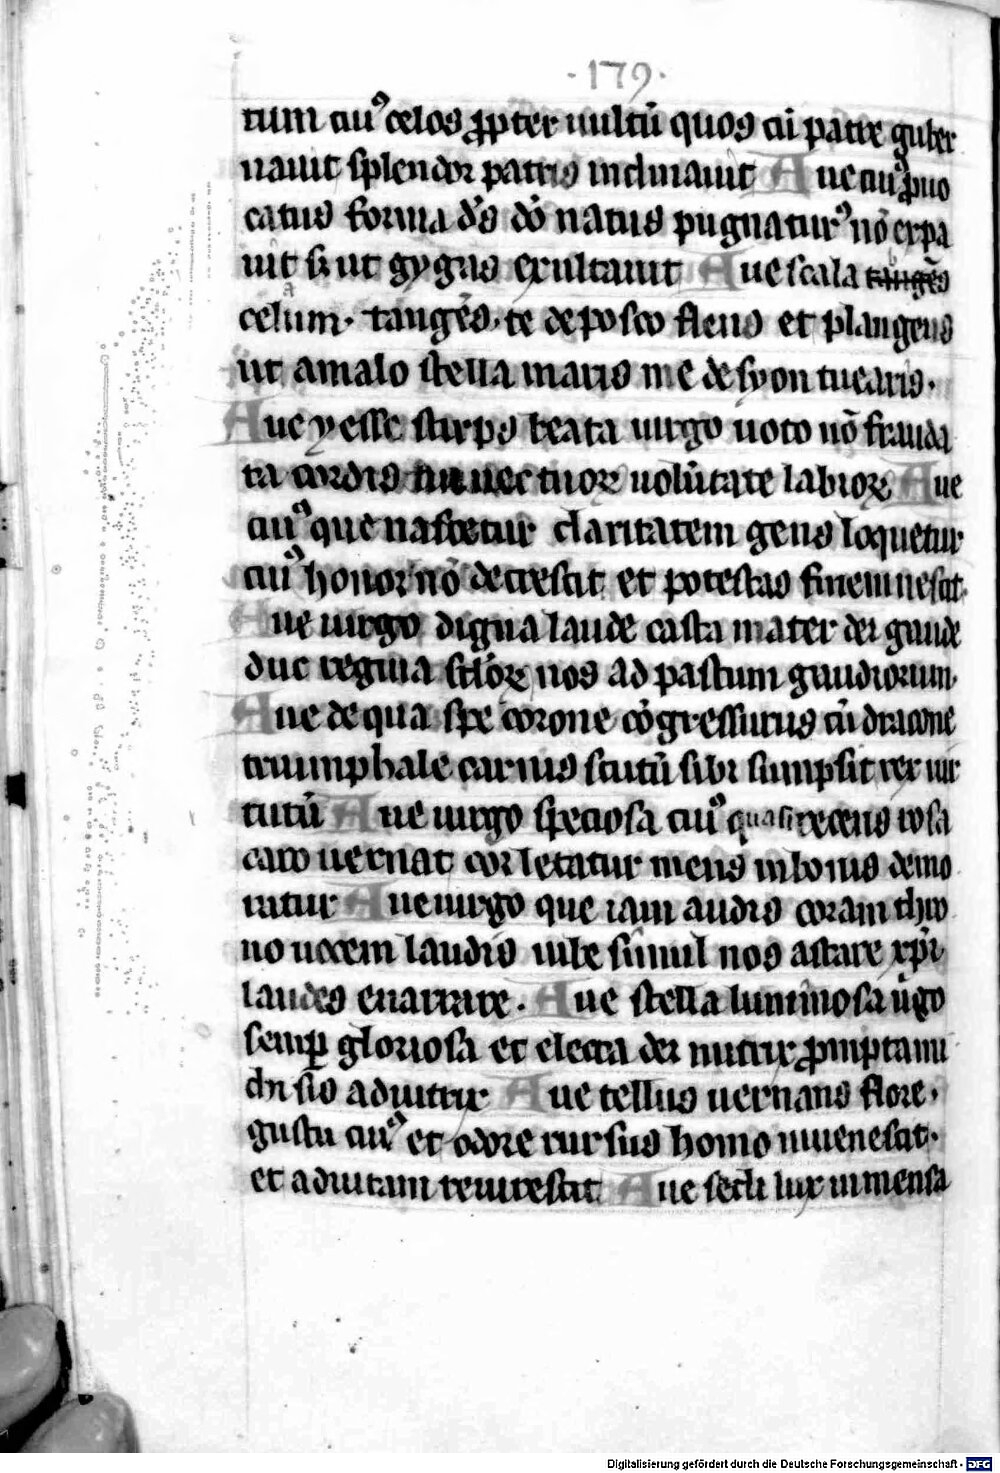 ·179·
tum cuiꝰ celos ꝓpter uultū quos cū patre guber
nauit splendor patris inclinauit Aue cuiꝰ ꝓuo
catus forma dꝰs dō natus pugnaturꝰ nō expa
uit sꝫ ut gygas exultauit Aue scala tangēs
celum· tangēs· te deposco flens et plangens
ut a malo stella maris me de syon tuearis·
Aue yesse stirps beata uirgo uoto nō frauda
ta cordis nec tuoꝝ uolūtate labioꝝ Aue
cuiꝰ que nascetur claritatem gens loquetur
cuiꝰ honor nō decrescit et potestas finem nescit·
Aue uirgo digna laude casta mater dei gaude
duc regina sc̄loꝝ nos ad pastum gaudiorum·
Aue de qua spe corone cōgressurus cū dracone
triumphale carnis scutū sibi sumpsit rex uir
tutū Aue uirgo speciosa cuiꝰ quasi recens rosa
caro uernat cor letatur mens in bonis demo
ratur Aue uirgo que iam audis coram thro
no uocem laudis iube simul nos astare xp̄i
laudes enarrare· Aue stella luminosa uͥgo
semꝑ gloriosa et electa dei nutrix ꝓmpta nui
dn sis adiutrix Aue tellus uernans flore·
gustu cuiꝰ et odore rursus homo iuuenescit·
et ad uitam reuirescit Aue secli lux inmensa
Digitalisierung gefördert durch die Deutsche Forschungsgemeinschaft - DFG